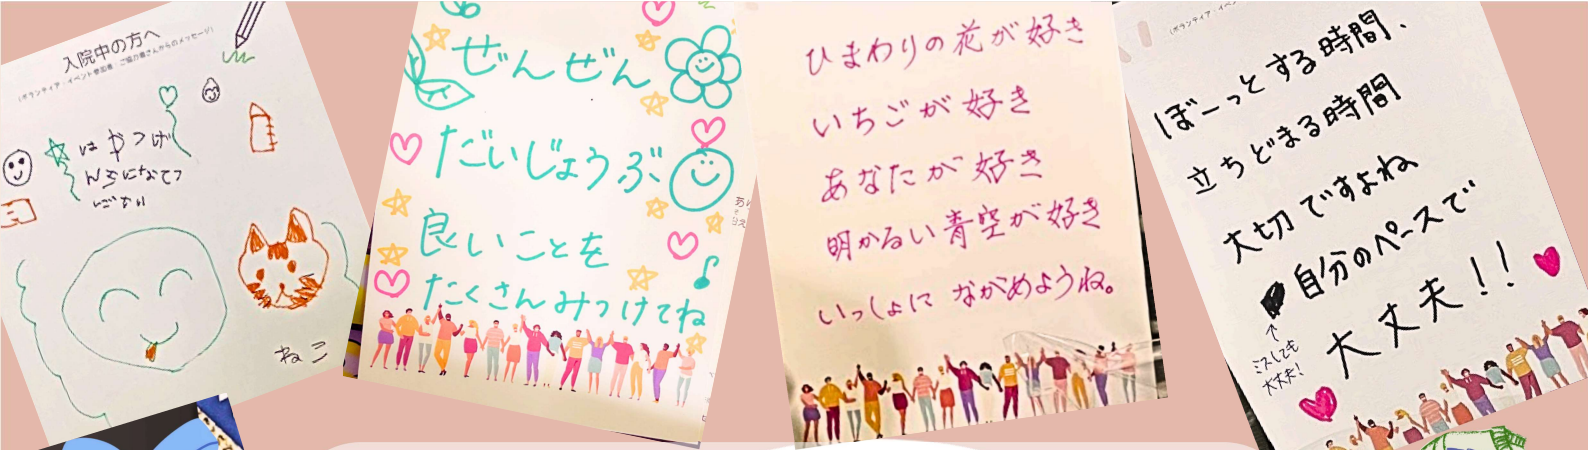 入院中の方へ
(ボランティア・イベント参加者・ご協力者さんからのメッセージ)
はやつげ
んきになてつ
ください
ねこ
ぜんぜん
だいじょうぶ
良いことを
たくさんみつけてね
ひまわりの花が好き
いちごが好き
あなたが好き
明かるい青空が好き
いっしょに ながめようね。
ぼーっとする時間、
立ちどまる時間
大切ですよね
自分のペースで
大丈夫!!
↑
ミスしても
大丈夫!